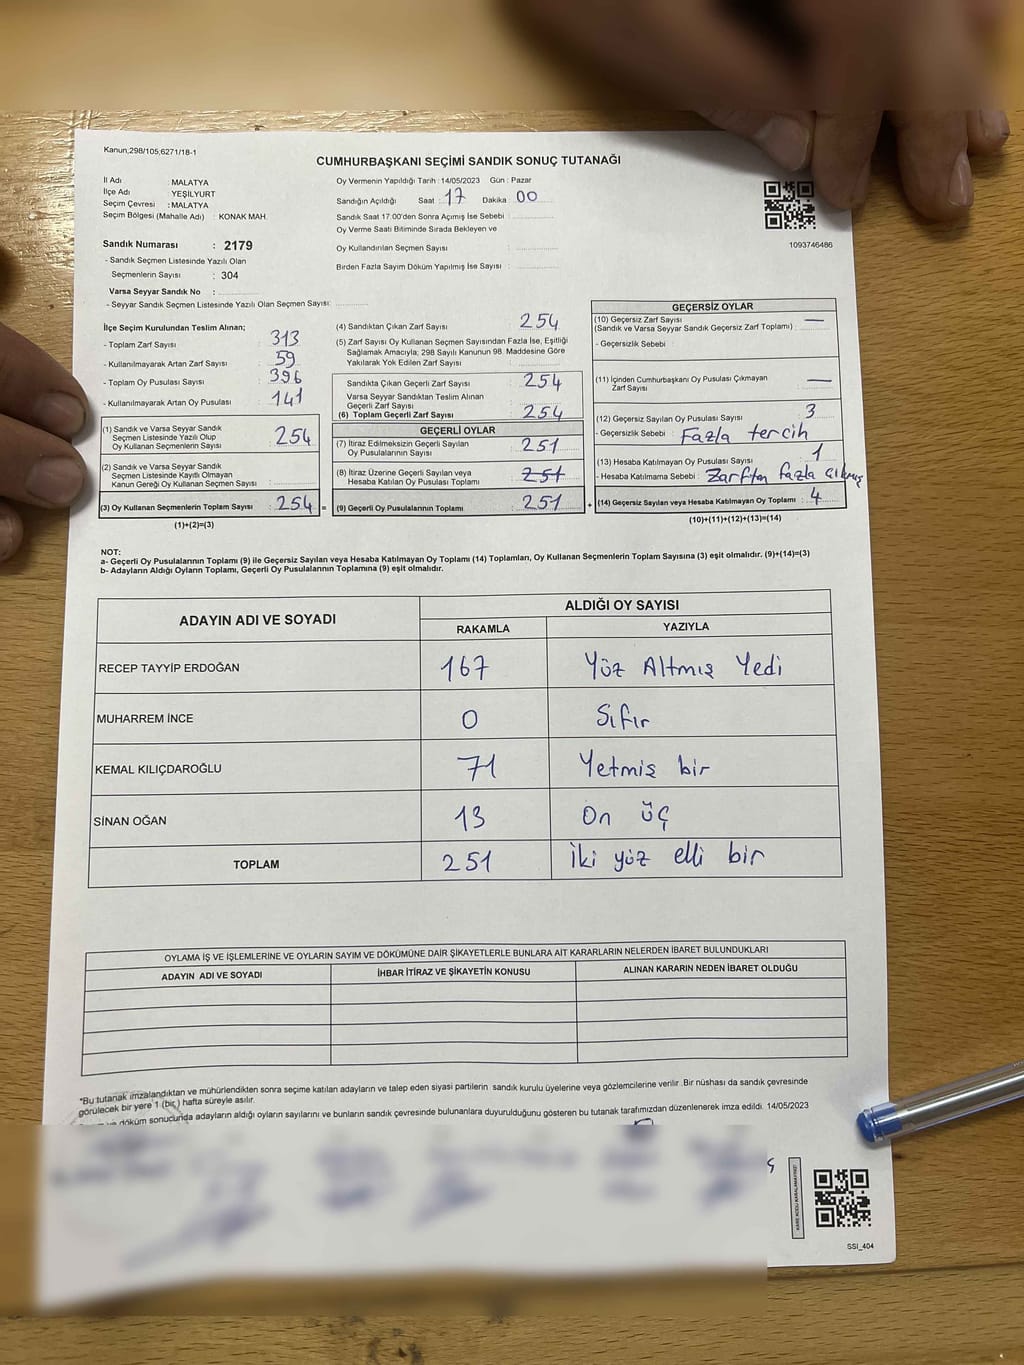 Kanun,298/105,6271/18-1
CUMHURBAŞKANI SEÇİMİ SANDIK SONUÇ TUTANAĞI
İl Adı : MALATYA
İlçe Adı : YEŞİLYURT
Seçim Çevresi : MALATYA
Seçim Bölgesi (Mahalle Adı) : KONAK MAH.
Sandık Numarası : 2179
- Sandık Seçmen Listesinde Yazılı Olan
Seçmenlerin Sayısı : 304
Varsa Seyyar Sandık No :
- Seyyar Sandık Seçmen Listesinde Yazılı Olan Seçmen Sayısı:
Oy Vermenin Yapıldığı Tarih : 14/05/2023 Gün : Pazar
Sandığın Açıldığı Saat : 17 Dakika : 00
Sandık Saat 17:00'den Sonra Açımış İse Sebebi :
Oy Verme Saati Bitiminde Sırada Bekleyen ve
Oy Kullandırılan Seçmen Sayısı :
Birden Fazla Sayım Döküm Yapılmış İse Sayısı :
1093746486
İlçe Seçim Kurulundan Teslim Alınan;
- Toplam Zarf Sayısı : 313
- Kullanılmayarak Artan Zarf Sayısı : 59
- Toplam Oy Pusulası Sayısı : 396
- Kullanılmayarak Artan Oy Pusulası : 141
(1) Sandık ve Varsa Seyyar Sandık
Seçmen Listesinde Yazılı Olup
Oy Kullanan Seçmenlerin Sayısı : 254
(2) Sandık ve Varsa Seyyar Sandık
Seçmen Listesinde Kayıtlı Olmayan
Kanun Gereği Oy Kullanan Seçmen Sayısı :
(3) Oy Kullanan Seçmenlerin Toplam Sayısı : 254 =
(1)+(2)=(3)
(4) Sandıktan Çıkan Zarf Sayısı : 254
(5) Zarf Sayısı Oy Kullanan Seçmen Sayısından Fazla İse, Eşitliği
Sağlamak Amacıyla; 298 Sayılı Kanunun 98. Maddesine Göre
Yakılarak Yok Edilen Zarf Sayısı :
Sandıkta Çıkan Geçerli Zarf Sayısı : 254
Varsa Seyyar Sandıktan Teslim Alınan
Geçerli Zarf Sayısı :
(6) Toplam Geçerli Zarf Sayısı : 254
GEÇERLİ OYLAR
(7) İtiraz Edilmeksizin Geçerli Sayılan
Oy Pusulasının Sayısı : 251
(8) İtiraz Üzerine Geçerli Sayılan veya
Hesaba Katılan Oy Pusulası Toplamı : 251
(9) Geçerli Oy Pusulalarının Toplamı : 251 +
GEÇERSİZ OYLAR
(10) Geçersiz Zarf Sayısı —
(Sandık ve Varsa Seyyar Sandık Geçersiz Zarf Toplamı) :
- Geçersizlik Sebebi :
(11) İçinden Cumhurbaşkanı Oy Pusulası Çıkmayan —
Zarf Sayısı :
(12) Geçersiz Sayılan Oy Pusulası Sayısı : 3
- Geçersizlik Sebebi : Fazla tercih
(13) Hesaba Katılmayan Oy Pusulası Sayısı : 1
- Hesaba Katılmama Sebebi : Zarftan fazla çıkmış
(14) Geçersiz Sayılan veya Hesaba Katılmayan Oy Toplamı : 4
(10)+(11)+(12)+(13)=(14)
NOT:
a- Geçerli Oy Pusulalarının Toplamı (9) ile Geçersiz Sayılan veya Hesaba Katılmayan Oy Toplamı (14) Toplamları, Oy Kullanan Seçmenlerin Toplam Sayısına (3) eşit olmalıdır. (9)+(14)=(3)
b- Adayların Aldığı Oyların Toplamı, Geçerli Oy Pusulalarının Toplamına (9) eşit olmalıdır.
ADAYIN ADI VE SOYADI
ALDIĞI OY SAYISI
RAKAMLA YAZIYLA
RECEP TAYYİP ERDOĞAN 167 Yüz Altmış Yedi
MUHARREM İNCE 0 Sıfır
KEMAL KILIÇDAROĞLU 71 Yetmiş bir
SİNAN OĞAN 13 On üç
TOPLAM 251 İki yüz elli bir
OYLAMA İŞ VE İŞLEMLERİNE VE OYLARIN SAYIM VE DÖKÜMÜNE DAİR ŞİKAYETLERLE BUNLARA AİT KARARLARIN NELERDEN İBARET BULUNDUKLARI
ADAYIN ADI VE SOYADI İHBAR İTİRAZ VE ŞİKAYETİN KONUSU ALINAN KARARIN NEDEN İBARET OLDUĞU
*Bu tutanak imzalandıktan ve mühürlendikten sonra seçime katılan adayların ve talep eden siyasi partilerin sandık kurulu üyelerine veya gözlemcilerine verilir. Bir nüshası da sandık çevresinde
görülecek bir yere 1 (bir) hafta süreyle asılır.
ve döküm sonucunda adayların aldığı oyların sayılarını ve bunların sandık çevresinde bulunanlara duyurulduğunu gösteren bu tutanak tarafımızdan düzenlenerek imza edildi. 14/05/2023
KARE KODU KARALAMAYINIZ!
SSI_404